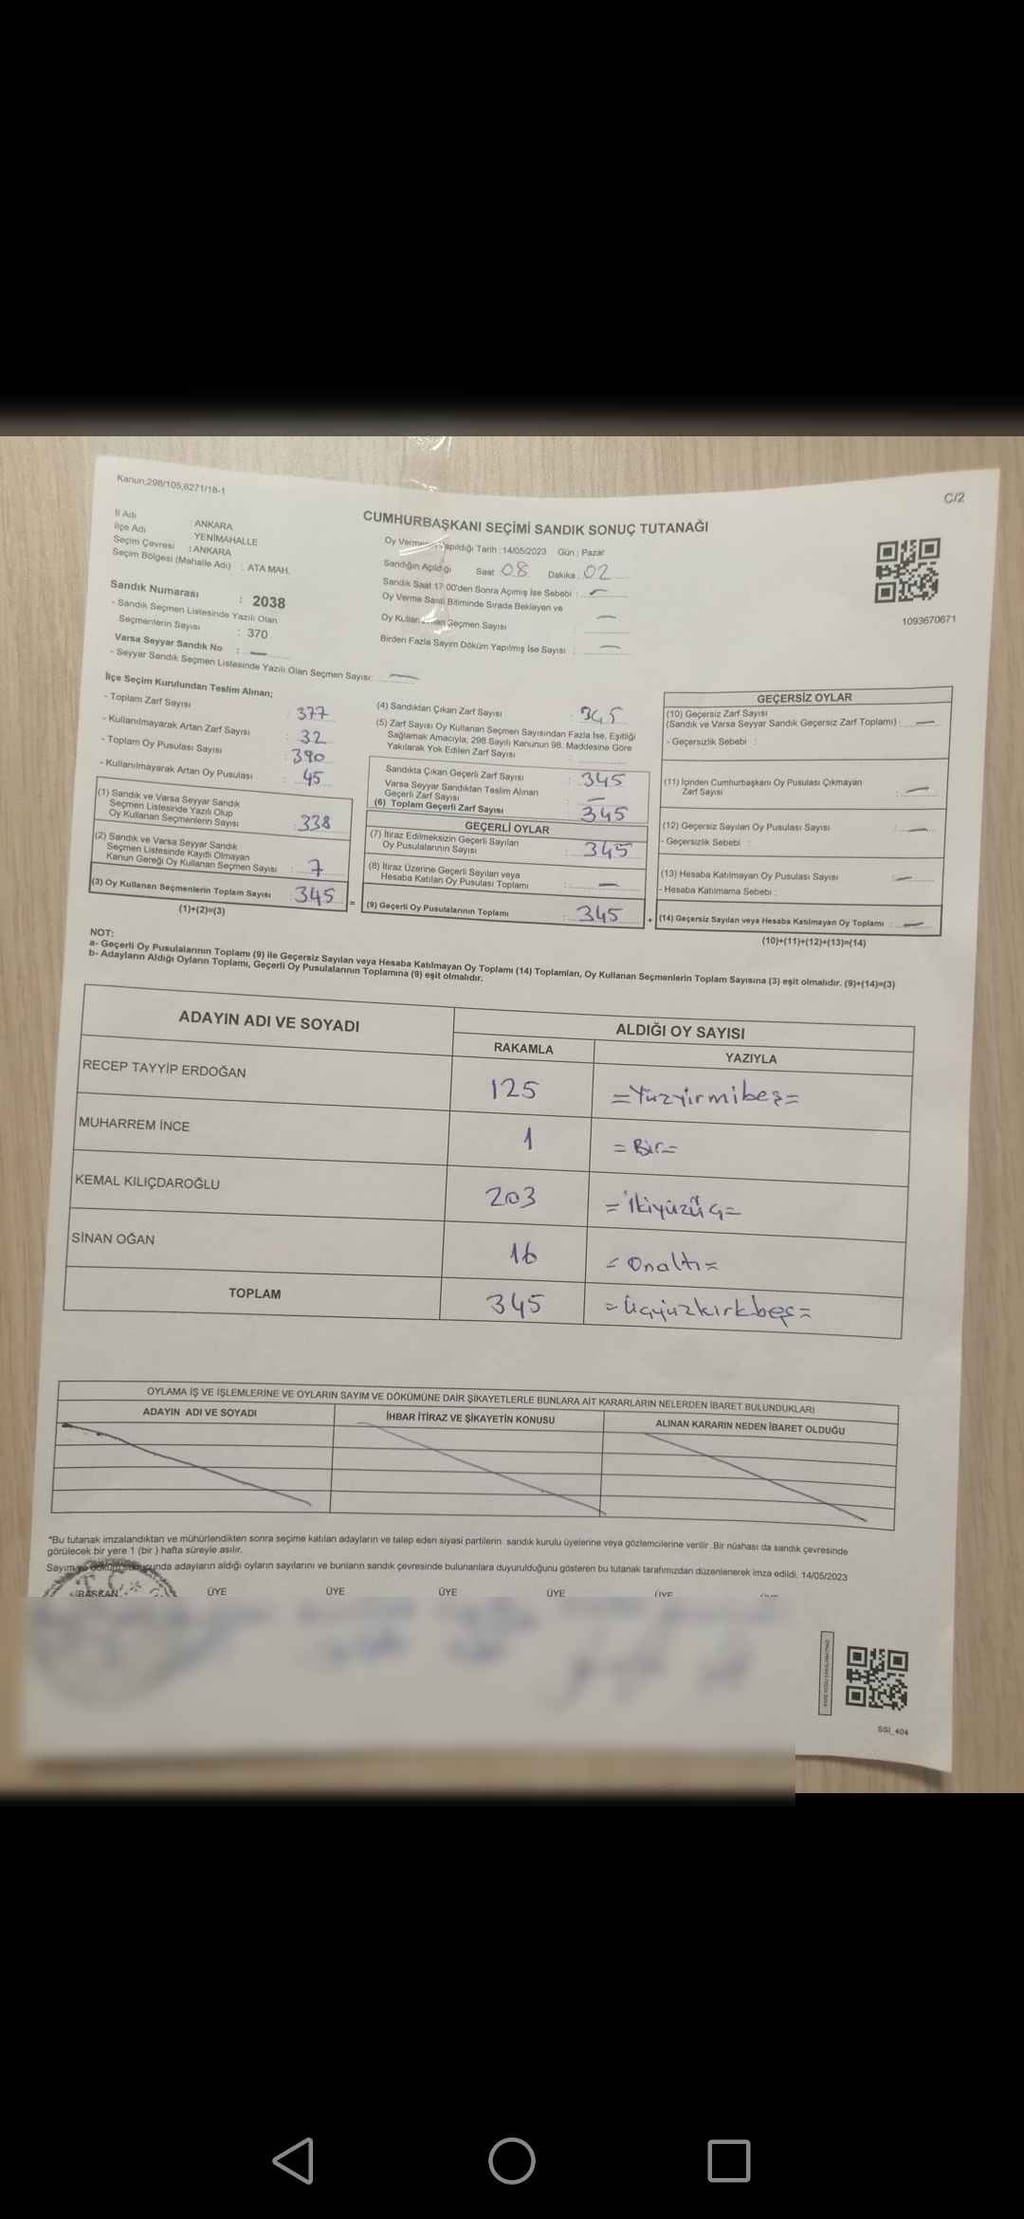 Kanun,298/105,6271/18-1
C/2
CUMHURBAŞKANI SEÇİMİ SANDIK SONUÇ TUTANAĞI
İl Adı : ANKARA
İlçe Adı YENİMAHALLE
Seçim Çevresi : ANKARA
Seçim Bölgesi (Mahalle Adı) : ATA MAH.
Sandık Numarası : 2038
- Sandık Seçmen Listesinde Yazılı Olan
Seçmenlerin Sayısı : 370
Varsa Seyyar Sandık No : —
- Seyyar Sandık Seçmen Listesinde Yazılı Olan Seçmen Sayısı: —
Oy Verme Yapıldığı Tarih : 14/05/2023 Gün : Pazar
Sandığın Açıldığı Saat 08 Dakika 02
Sandık Saat 17:00'den Sonra Açımış İse Sebebi : —
Oy Verme Saati Bitiminde Sırada Bekleyen ve
Oy Kullanan Seçmen Sayısı —
Birden Fazla Sayım Döküm Yapılmış İse Sayısı —
1093670671
İlçe Seçim Kurulundan Teslim Alınan;
- Toplam Zarf Sayısı 377
- Kullanılmayarak Artan Zarf Sayısı : 32
- Toplam Oy Pusulası Sayısı : 390
- Kullanılmayarak Artan Oy Pusulası : 45
(1) Sandık ve Varsa Seyyar Sandık
Seçmen Listesinde Yazılı Olup
Oy Kullanan Seçmenlerin Sayısı : 338
(2) Sandık ve Varsa Seyyar Sandık
Seçmen Listesinde Kayıtlı Olmayan
Kanun Gereği Oy Kullanan Seçmen Sayısı : 7
(3) Oy Kullanan Seçmenlerin Toplam Sayısı : 345 =
(1)+(2)=(3)
(4) Sandıktan Çıkan Zarf Sayısı : 345
(5) Zarf Sayısı Oy Kullanan Seçmen Sayısından Fazla İse, Eşitliği
Sağlamak Amacıyla, 298 Sayılı Kanunun 98. Maddesine Göre
Yakılarak Yok Edilen Zarf Sayısı
Sandıkta Çıkan Geçerli Zarf Sayısı : 345
Varsa Seyyar Sandıktan Teslim Alınan
Geçerli Zarf Sayısı : —
(6) Toplam Geçerli Zarf Sayısı 345
GEÇERLİ OYLAR
(7) İtiraz Edilmeksizin Geçerli Sayılan
Oy Pusulalarının Sayısı : 345
(8) İtiraz Üzerine Geçerli Sayılan veya
Hesaba Katılan Oy Pusulası Toplamı : —
(9) Geçerli Oy Pusulalarının Toplamı : 345 +
GEÇERSİZ OYLAR
(10) Geçersiz Zarf Sayısı
(Sandık ve Varsa Seyyar Sandık Geçersiz Zarf Toplamı) : —
- Geçersizlik Sebebi :
(11) İçinden Cumhurbaşkanı Oy Pusulası Çıkmayan
Zarf Sayısı : —
(12) Geçersiz Sayılan Oy Pusulası Sayısı : —
- Geçersizlik Sebebi :
(13) Hesaba Katılmayan Oy Pusulası Sayısı : —
- Hesaba Katılmama Sebebi :
(14) Geçersiz Sayılan veya Hesaba Katılmayan Oy Toplamı : —
(10)+(11)+(12)+(13)=(14)
NOT:
a- Geçerli Oy Pusulalarının Toplamı (9) ile Geçersiz Sayılan veya Hesaba Katılmayan Oy Toplamı (14) Toplamları, Oy Kullanan Seçmenlerin Toplam Sayısına (3) eşit olmalıdır. (9)+(14)=(3)
b- Adayların Aldığı Oyların Toplamı, Geçerli Oy Pusulalarının Toplamına (9) eşit olmalıdır.
ADAYIN ADI VE SOYADI ALDIĞI OY SAYISI
RAKAMLA YAZIYLA
RECEP TAYYİP ERDOĞAN 125 =Yüzyirmibeş=
MUHARREM İNCE 1 =Bir=
KEMAL KILIÇDAROĞLU 203 =İkiyüzüç=
SİNAN OĞAN 16 =Onaltı=
TOPLAM 345 =Üçyüzkırkbeş=
OYLAMA İŞ VE İŞLEMLERİNE VE OYLARIN SAYIM VE DÖKÜMÜNE DAİR ŞİKAYETLERLE BUNLARA AİT KARARLARIN NELERDEN İBARET BULUNDUKLARI
ADAYIN ADI VE SOYADI İHBAR İTİRAZ VE ŞİKAYETİN KONUSU ALINAN KARARIN NEDEN İBARET OLDUĞU
*Bu tutanak imzalandıktan ve mühürlendikten sonra seçime katılan adayların ve talep eden siyasi partilerin sandık kurulu üyelerine veya gözlemcilerine verilir. Bir nüshası da sandık çevresinde
görülecek bir yere 1 (bir ) hafta süreyle asılır.
Sayım ve dökümü sonunda adayların aldığı oyların sayılarını ve bunların sandık çevresinde bulunanlara duyurulduğunu gösteren bu tutanak tarafımızdan düzenlenerek imza edildi. 14/05/2023
BAŞKAN ÜYE ÜYE ÜYE ÜYE ÜYE
SSI_404